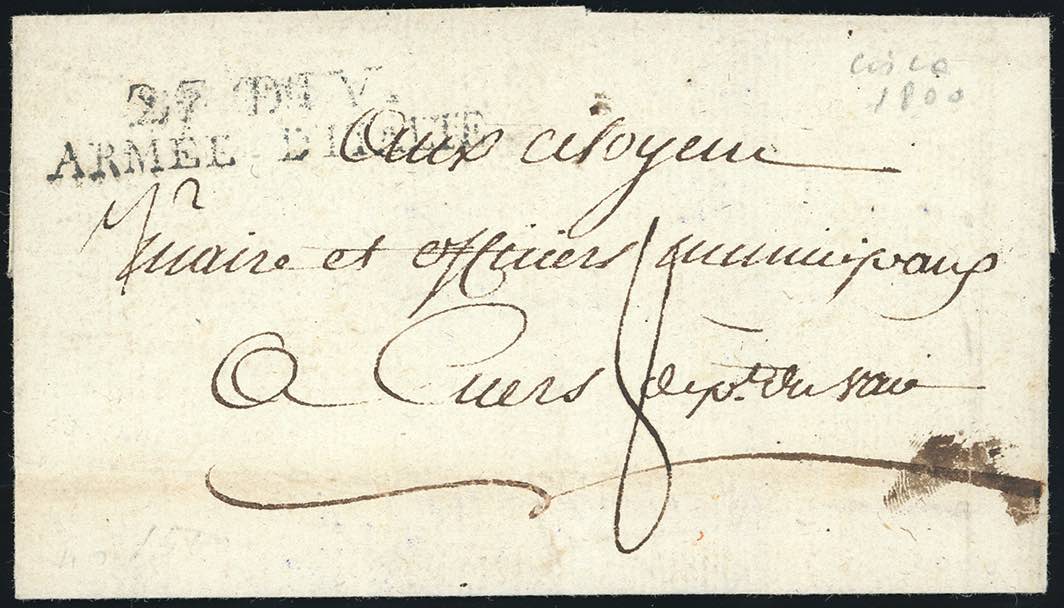 2ᵉ DIV.
ARMÉE D'ITALIE
circa
1800
Aux citoyens
maire et officiers municipaux
8
A Cuers dept. du var